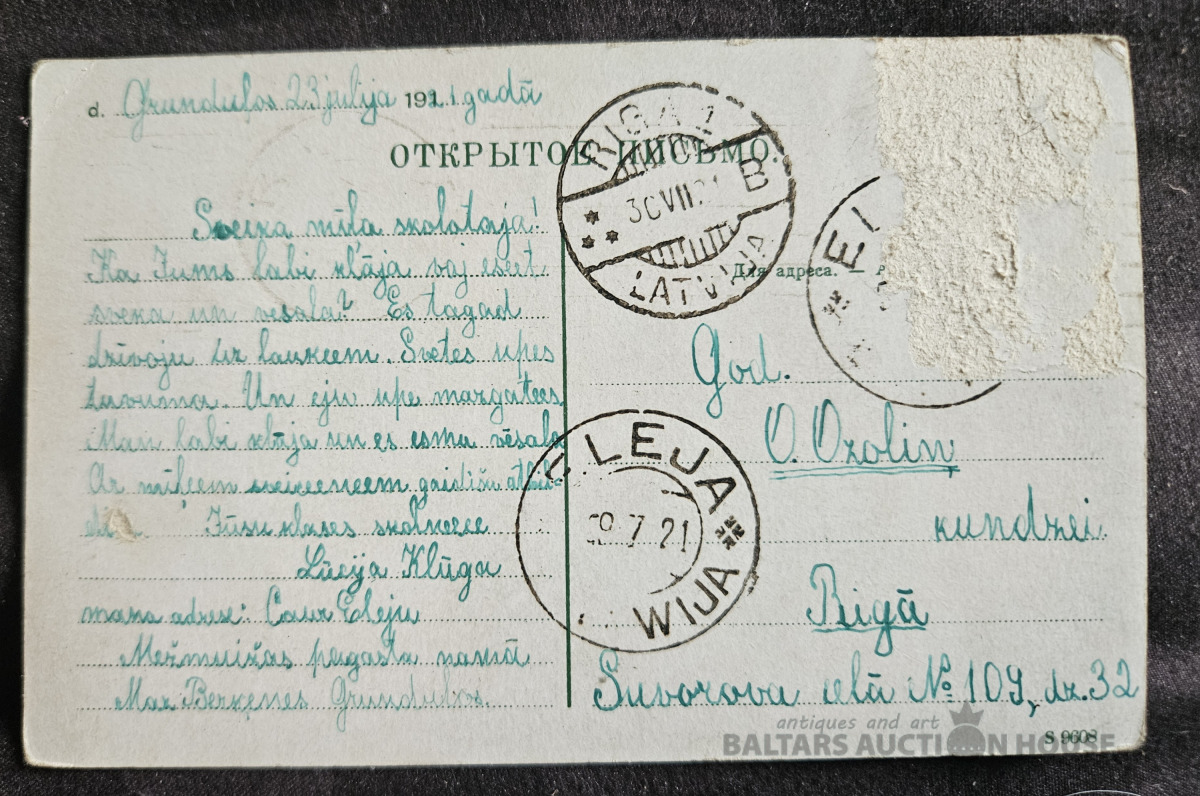 d. Grunduļos 23 julija 1921 gadā
ОТКРЫТОЕ ПИСЬМО.
Sveika mīļa skolotaja!
Ka Jums labi klāja vaj esert
sveka un vesala? Es tagad
dzīvoju uz laukeem. Svetes upes
tavuma. Un eju upe margatees
Man labi klāja un es esmu vēsala
Ar mileem sveiceeneem gaidišu
Jūsu klases skolneece
Lūcija Klūga
mana adrese: Caur Eleju
Mežmuižas pagasta namā
Maz Berķenes Grunduļos.
RIGA 1
B
30 VII 21
LATVIJA
Для адреса. —
EL
God.
O. Ozolin
kundzei
Rigā
Suvorova elā № 109, dz. 32
ELEJA
29 7 21
WIJA
S 9608
antiques and art
BALTARS AUCTION HOUSE